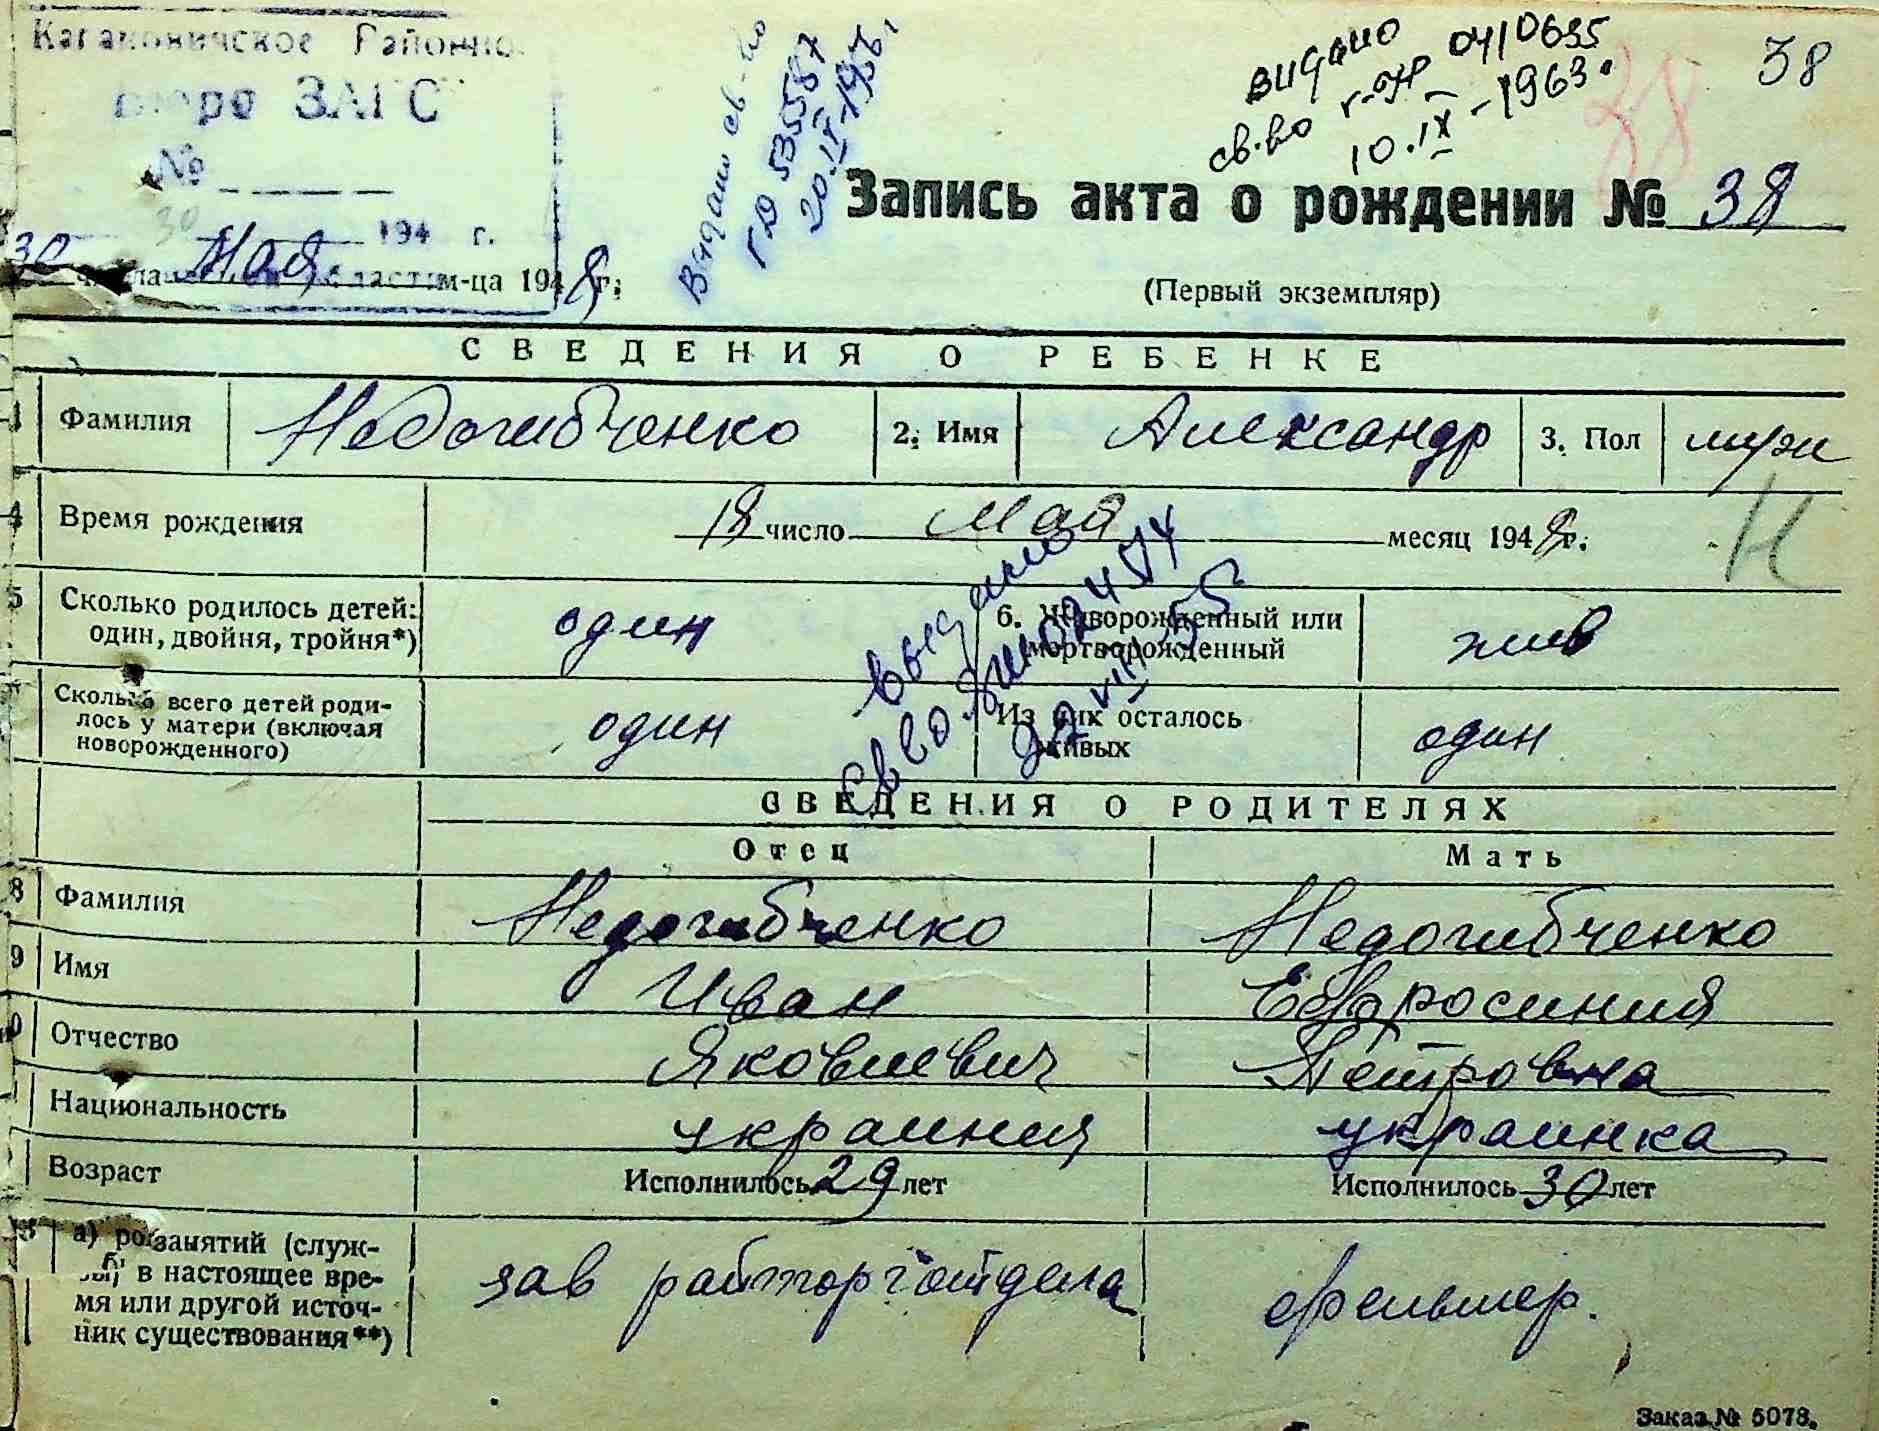 Кагановичское Районно
Бюро ЗАГС
№
30 194 г.
30 числа Мая м-ца 1948 г.
Выдано св-во
ГЮ 535587
20.IX-1956
видано
св-во 0410635
10.IX-1963
38
38
Запись акта о рождении № 38
(Первый экземпляр)
СВЕДЕНИЯ О РЕБЕНКЕ
1 Фамилия Недогибченко 2. Имя Александр 3. Пол муж
4 Время рождения 18 число мая месяц 1948 г.
Н
5 Сколько родилось детей: один, двойня, тройня*) один 6. Живорожденный или мертворожденный жив
Сколько всего детей родилось у матери (включая новорожденного) один Из них осталось живых один
выдано
св во
СВЕДЕНИЯ О РОДИТЕЛЯХ
Отец Мать
8 Фамилия Недогибченко Недогибченко
9 Имя Иван Евфросиния
0 Отчество Яковлевич Петровна
Национальность украинец украинка
Возраст Исполнилось 29 лет Исполнилось 30 лет
а) род занятий (служ-
бы) в настоящее вре-
мя или другой источ-
ник существования**) зав райторготдела фельшер.
Заказ № 5078.